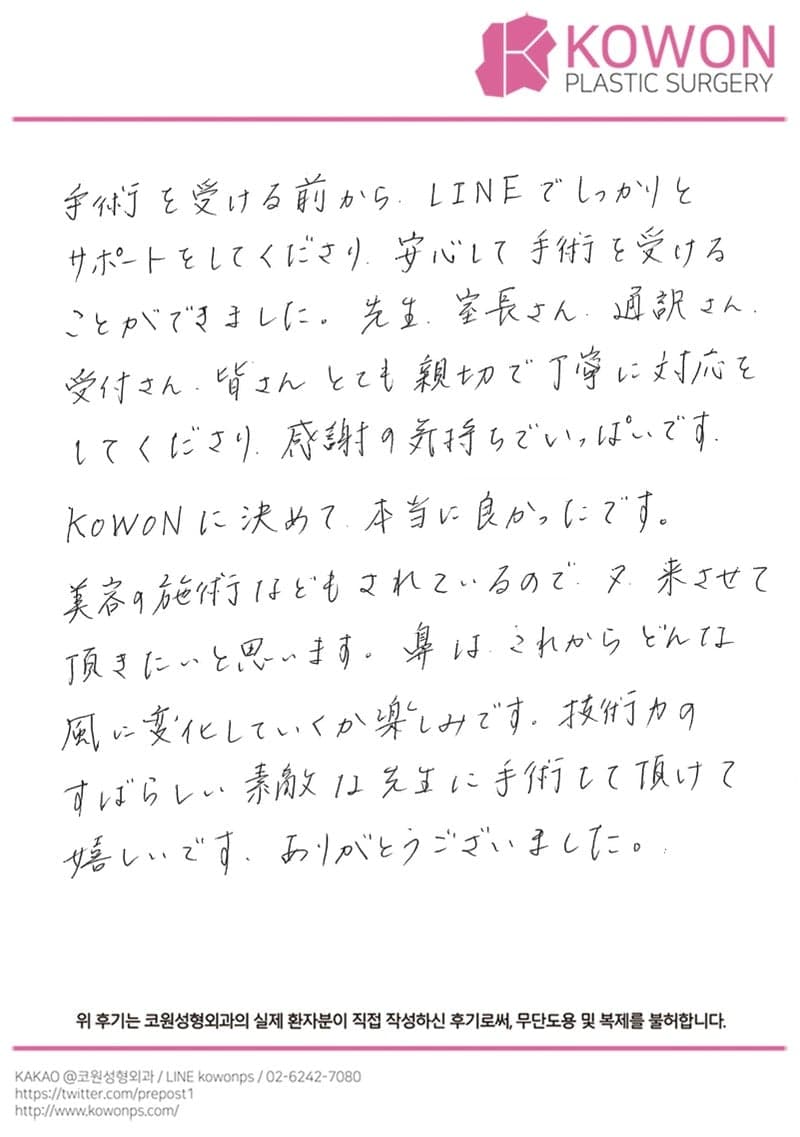 KOWON
PLASTIC SURGERY
手術を受ける前から、LINEでしっかりと
サポートをしてくださり、安心して手術を受ける
ことができました。先生、室長さん、通訳さん、
受付さん、皆さんとても親切で丁寧に対応を
してくださり、感謝の気持ちでいっぱいです。
KOWONに決めて、本当に良かったです。
美容の施術などもされているので、又、来させて
頂きたいと思います。鼻は、これからどんな
風に変化していくか楽しみです。技術力の
すばらしい素敵な先生に手術して頂けて
嬉しいです。ありがとうございました。
위 후기는 코원성형외과의 실제 환자분이 직접 작성하신 후기로써, 무단도용 및 복제를 불허합니다.
KAKAO @코원성형외과 / LINE kowonps / 02-6242-7080
https://twitter.com/prepost1
http://www.kowonps.com/